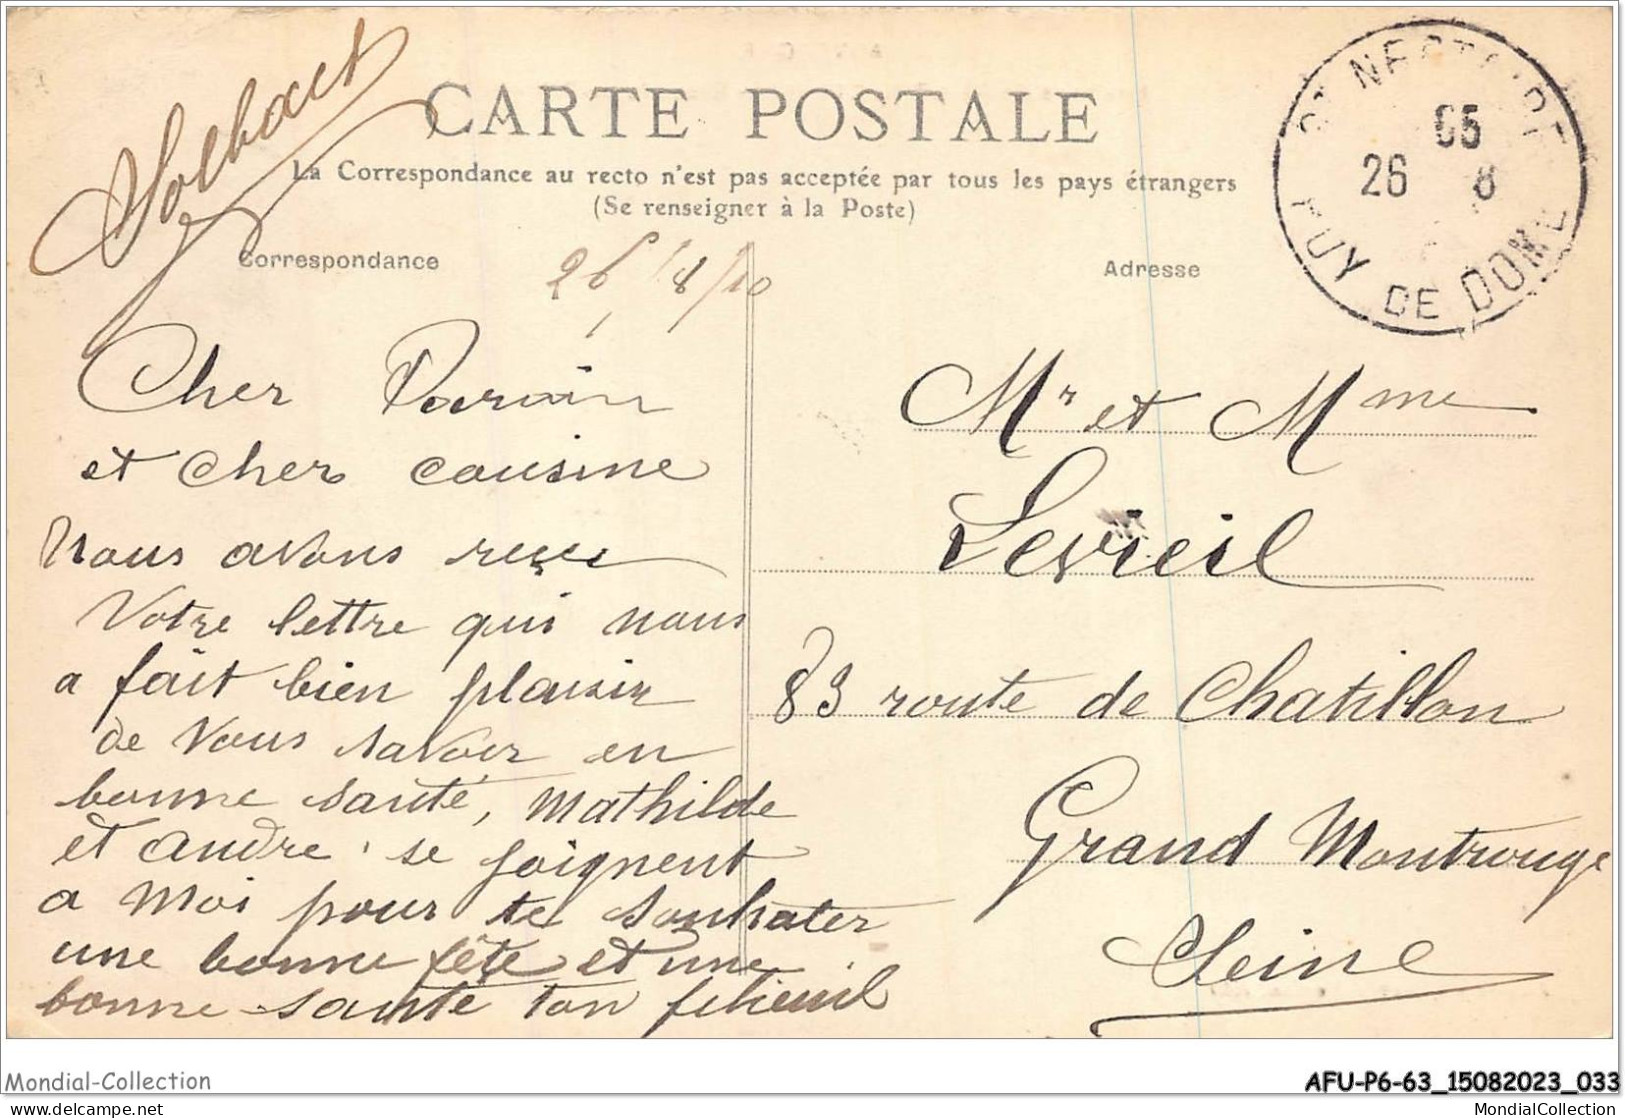 CARTE POSTALE
La Correspondance au recto n'est pas acceptée par tous les pays étrangers
(Se renseigner à la Poste)
Correspondance
Adresse
26/8/10
ST NECTAIRE
05
26 8
PUY DE DOME
Cher Parain
et cher cousine
Nous avons reçue
Votre lettre qui nous
a fait bien plaisir
de Vous savoir en
bonne santé, Mathilde
et andre se joignent
a Moi pour te souhater
une bonne fête et une
bonne santé ton filieuil
Mr et Mme
Levieil
83 route de Chatillon
Grand Montrouge
Seine
Mondial-Collection
AFU-P6-63_15082023_033
www.delcampe.net
MondialCollection